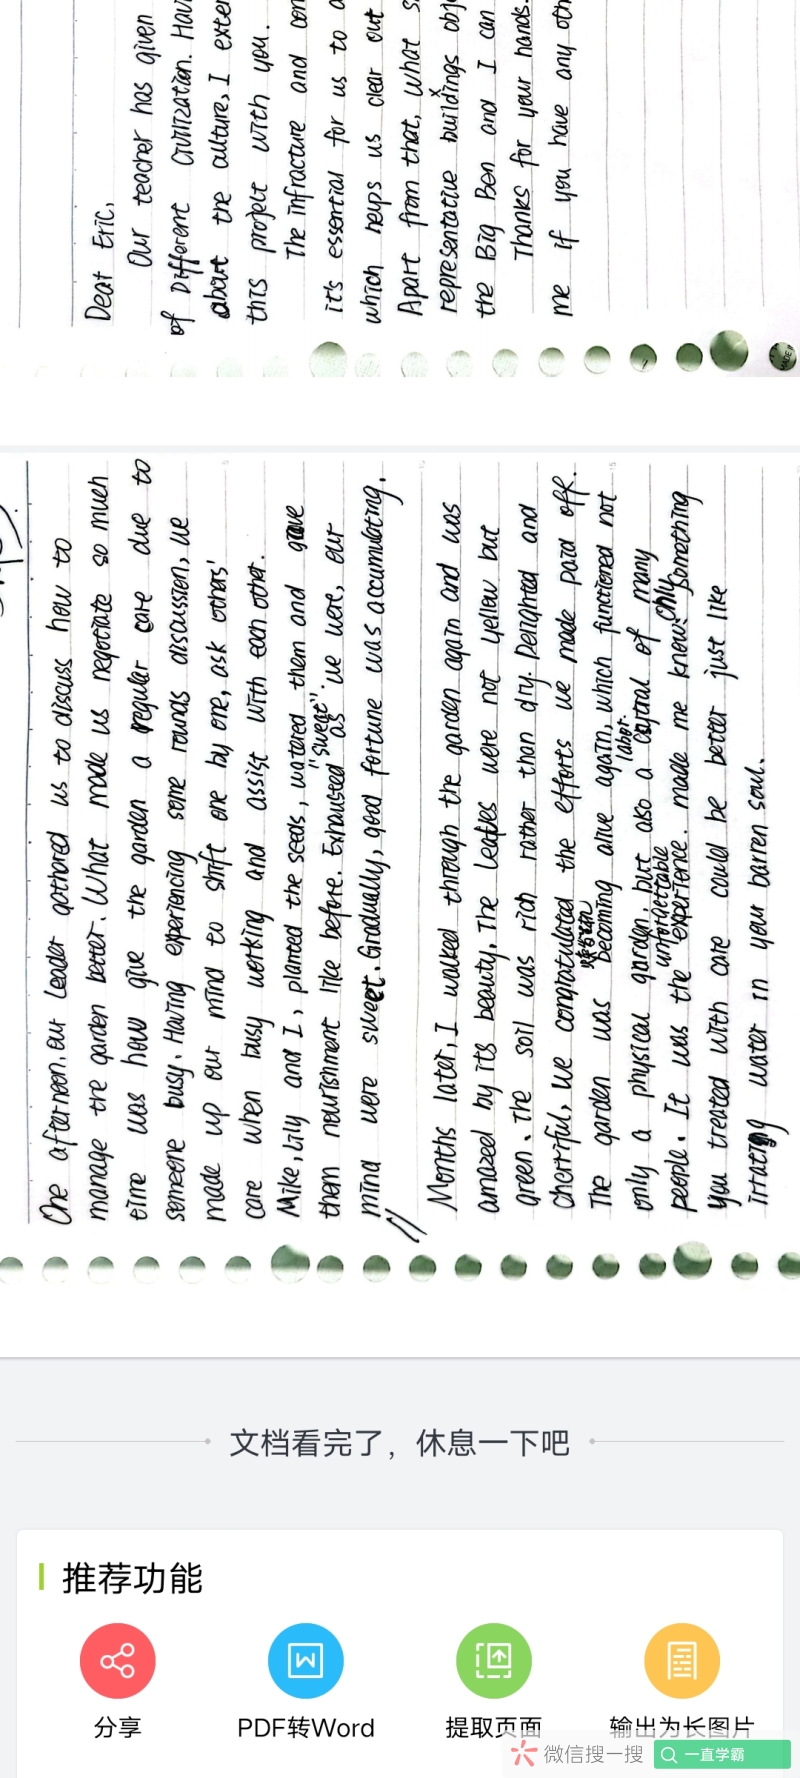 Dear Eric,
Our teacher has given
of Different Civilization. Havi
about the culture, I exten
this project with you.
The infracture and con
it's essential for us to a
which helps us clear out
Apart from that, what s
representative buildings obj
the Big Ben and I can
Thanks for your hands.
me if you have any oth
One afternoon, our leader gathored us to discuss how to
manage the garden better. What made us negotiate so much
time was how give the garden a regular care due to
someone busy. Having experiencing some rounds discussion, we
made up our mind to shift one by one, ask others'
care when busy working and assist with each other.
Mike, Lily and I, planted the seeds, watered them and gave
them nourishment like before. Exhausted as we were, our
"sweat".
mind were sweet. Gradually, good fortune was accumulating.
Months later, I walked through the garden again and was
amazed by its beauty. The leaves were not yellow but
green. The soil was rich rather than dry. Delighted and
cherriful, we congratulated the efforts we made paid off.
The garden was becoming alive again, which functioned not
labor.
only a physical garden, but also a of many
unforgettable only
people. It was the experience. made me know: Something
you treated with care could be better just like
irrating water in your barren soul.
文档看完了，休息一下吧
推荐功能
分享
PDF转Word
提取页面
输出为长图片
微信搜一搜
一直学霸